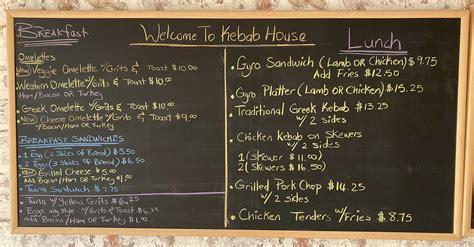 Breakfast
Welcome To Kebab House
Lunch
Omelettes
New Veggie Omelette w/Grits & Toast $10.00
Western Omelette w/Grits & Toast $10.00
Ham/Bacon or Turkey
Greek Omelette w/Grits & Toast $9.00
New Cheese Omelette w/Grits & Toast $9.00
w/Bacon/Ham or Turkey
Breakfast Sandwiches
1 Egg (2 Slices of Bread) $5.50
2 Eggs (3 Slices of Bread) $6.50
New Grilled Cheese $5.00
Add Bacon/Ham or Turkey $1.00
Tuna Sandwich $7.75
Tuna w/Yellow Grits $6.25
Eggs any Style w/Grits & Toast $6.25
Add Bacon/Ham or Turkey $1.00
Gyro Sandwich (Lamb or Chicken) $9.75
Add Fries $12.50
Gyro Platter (Lamb or Chicken) $15.25
Traditional Greek Kebab $13.25
w/ 2 sides
Chicken Kebab on Skewers
w/ 2 sides
1 (Skewer $11.00)
2 (Skewers $16.50)
Grilled Pork Chop $14.25
w/ 2 sides
Chicken Tenders w/Fries $8.75